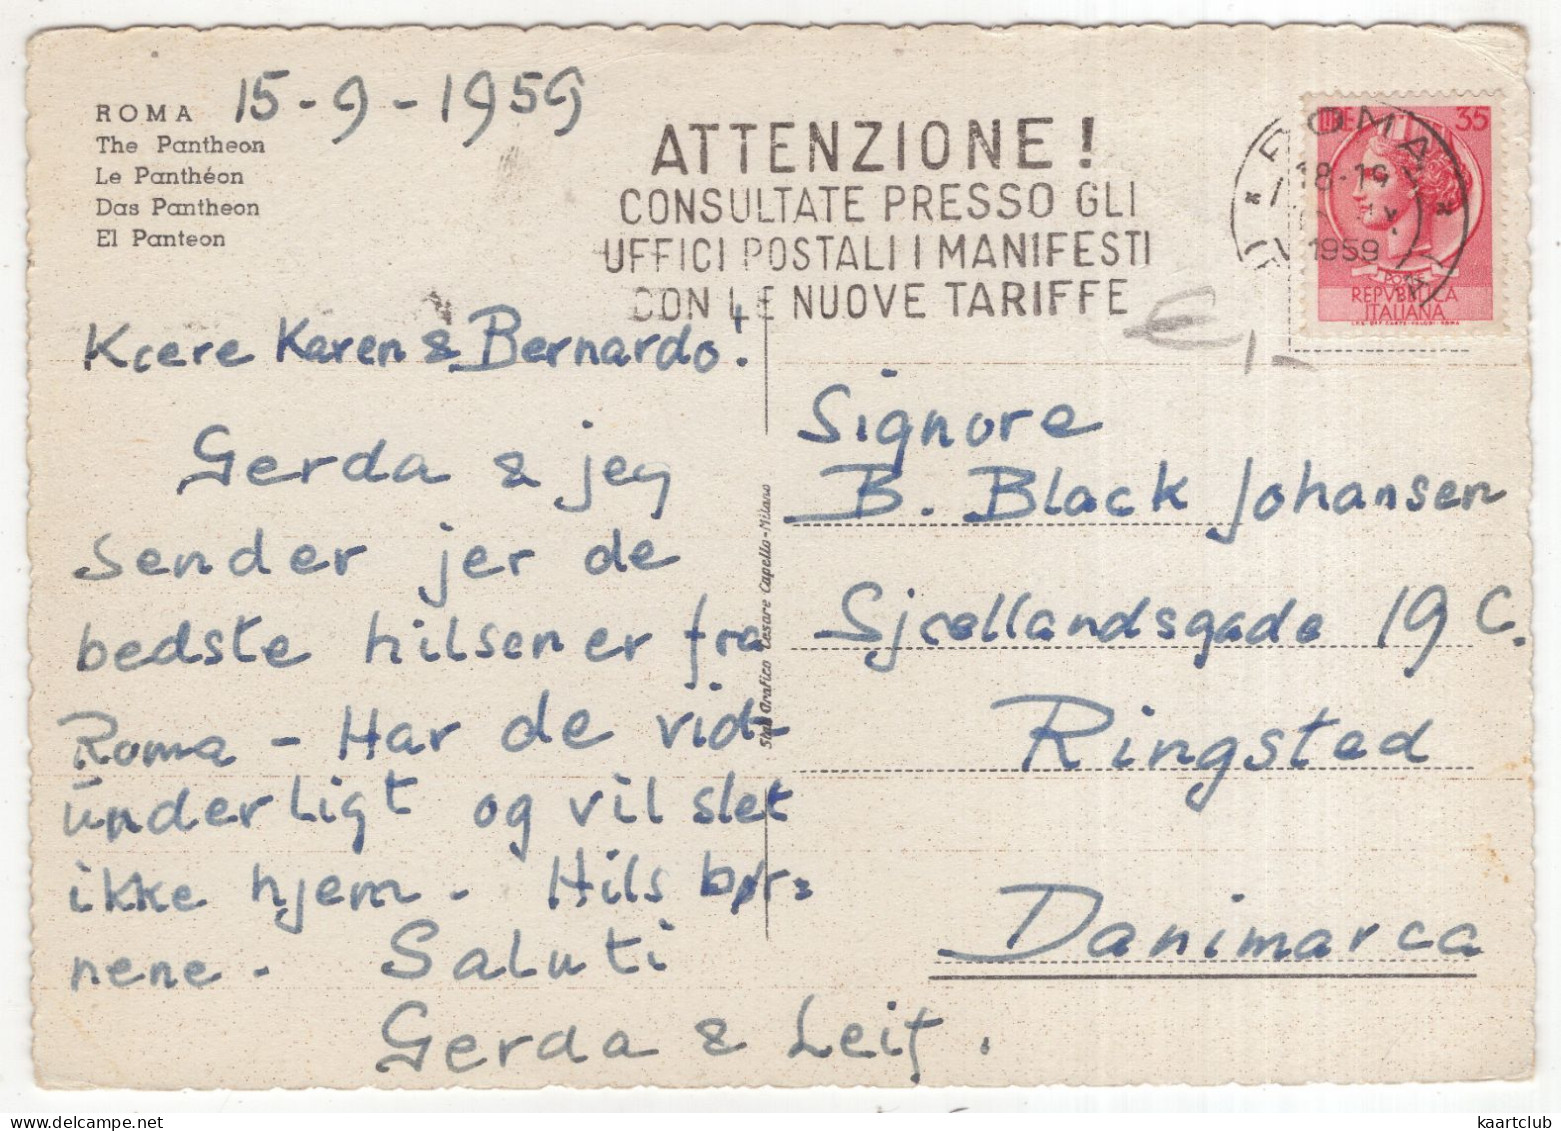 ROMA
The Pantheon
Le Panthéon
Das Pantheon
El Panteon
15-9-1959
ATTENZIONE!
CONSULTATE PRESSO GLI
UFFICI POSTALI I MANIFESTI
CON LE NUOVE TARIFFE
ROMA
18-19
1959
LIRE 35
POSTE
REPVBBLICA
ITALIANA
€ 1,-
Kære Karen & Bernardo!
Gerda & jeg
sender jer de
bedste hilsener fra
Roma - Har de vid-
underligt og vil slet
ikke hjem - Hils bør=
nene - Saluti
Gerda & Leif.
Stab. Grafico Cesare Capello-Milano
Signore
B. Black Johansen
Sjællandsgade 19 C.
Ringsted
Danimarca
kaartclub